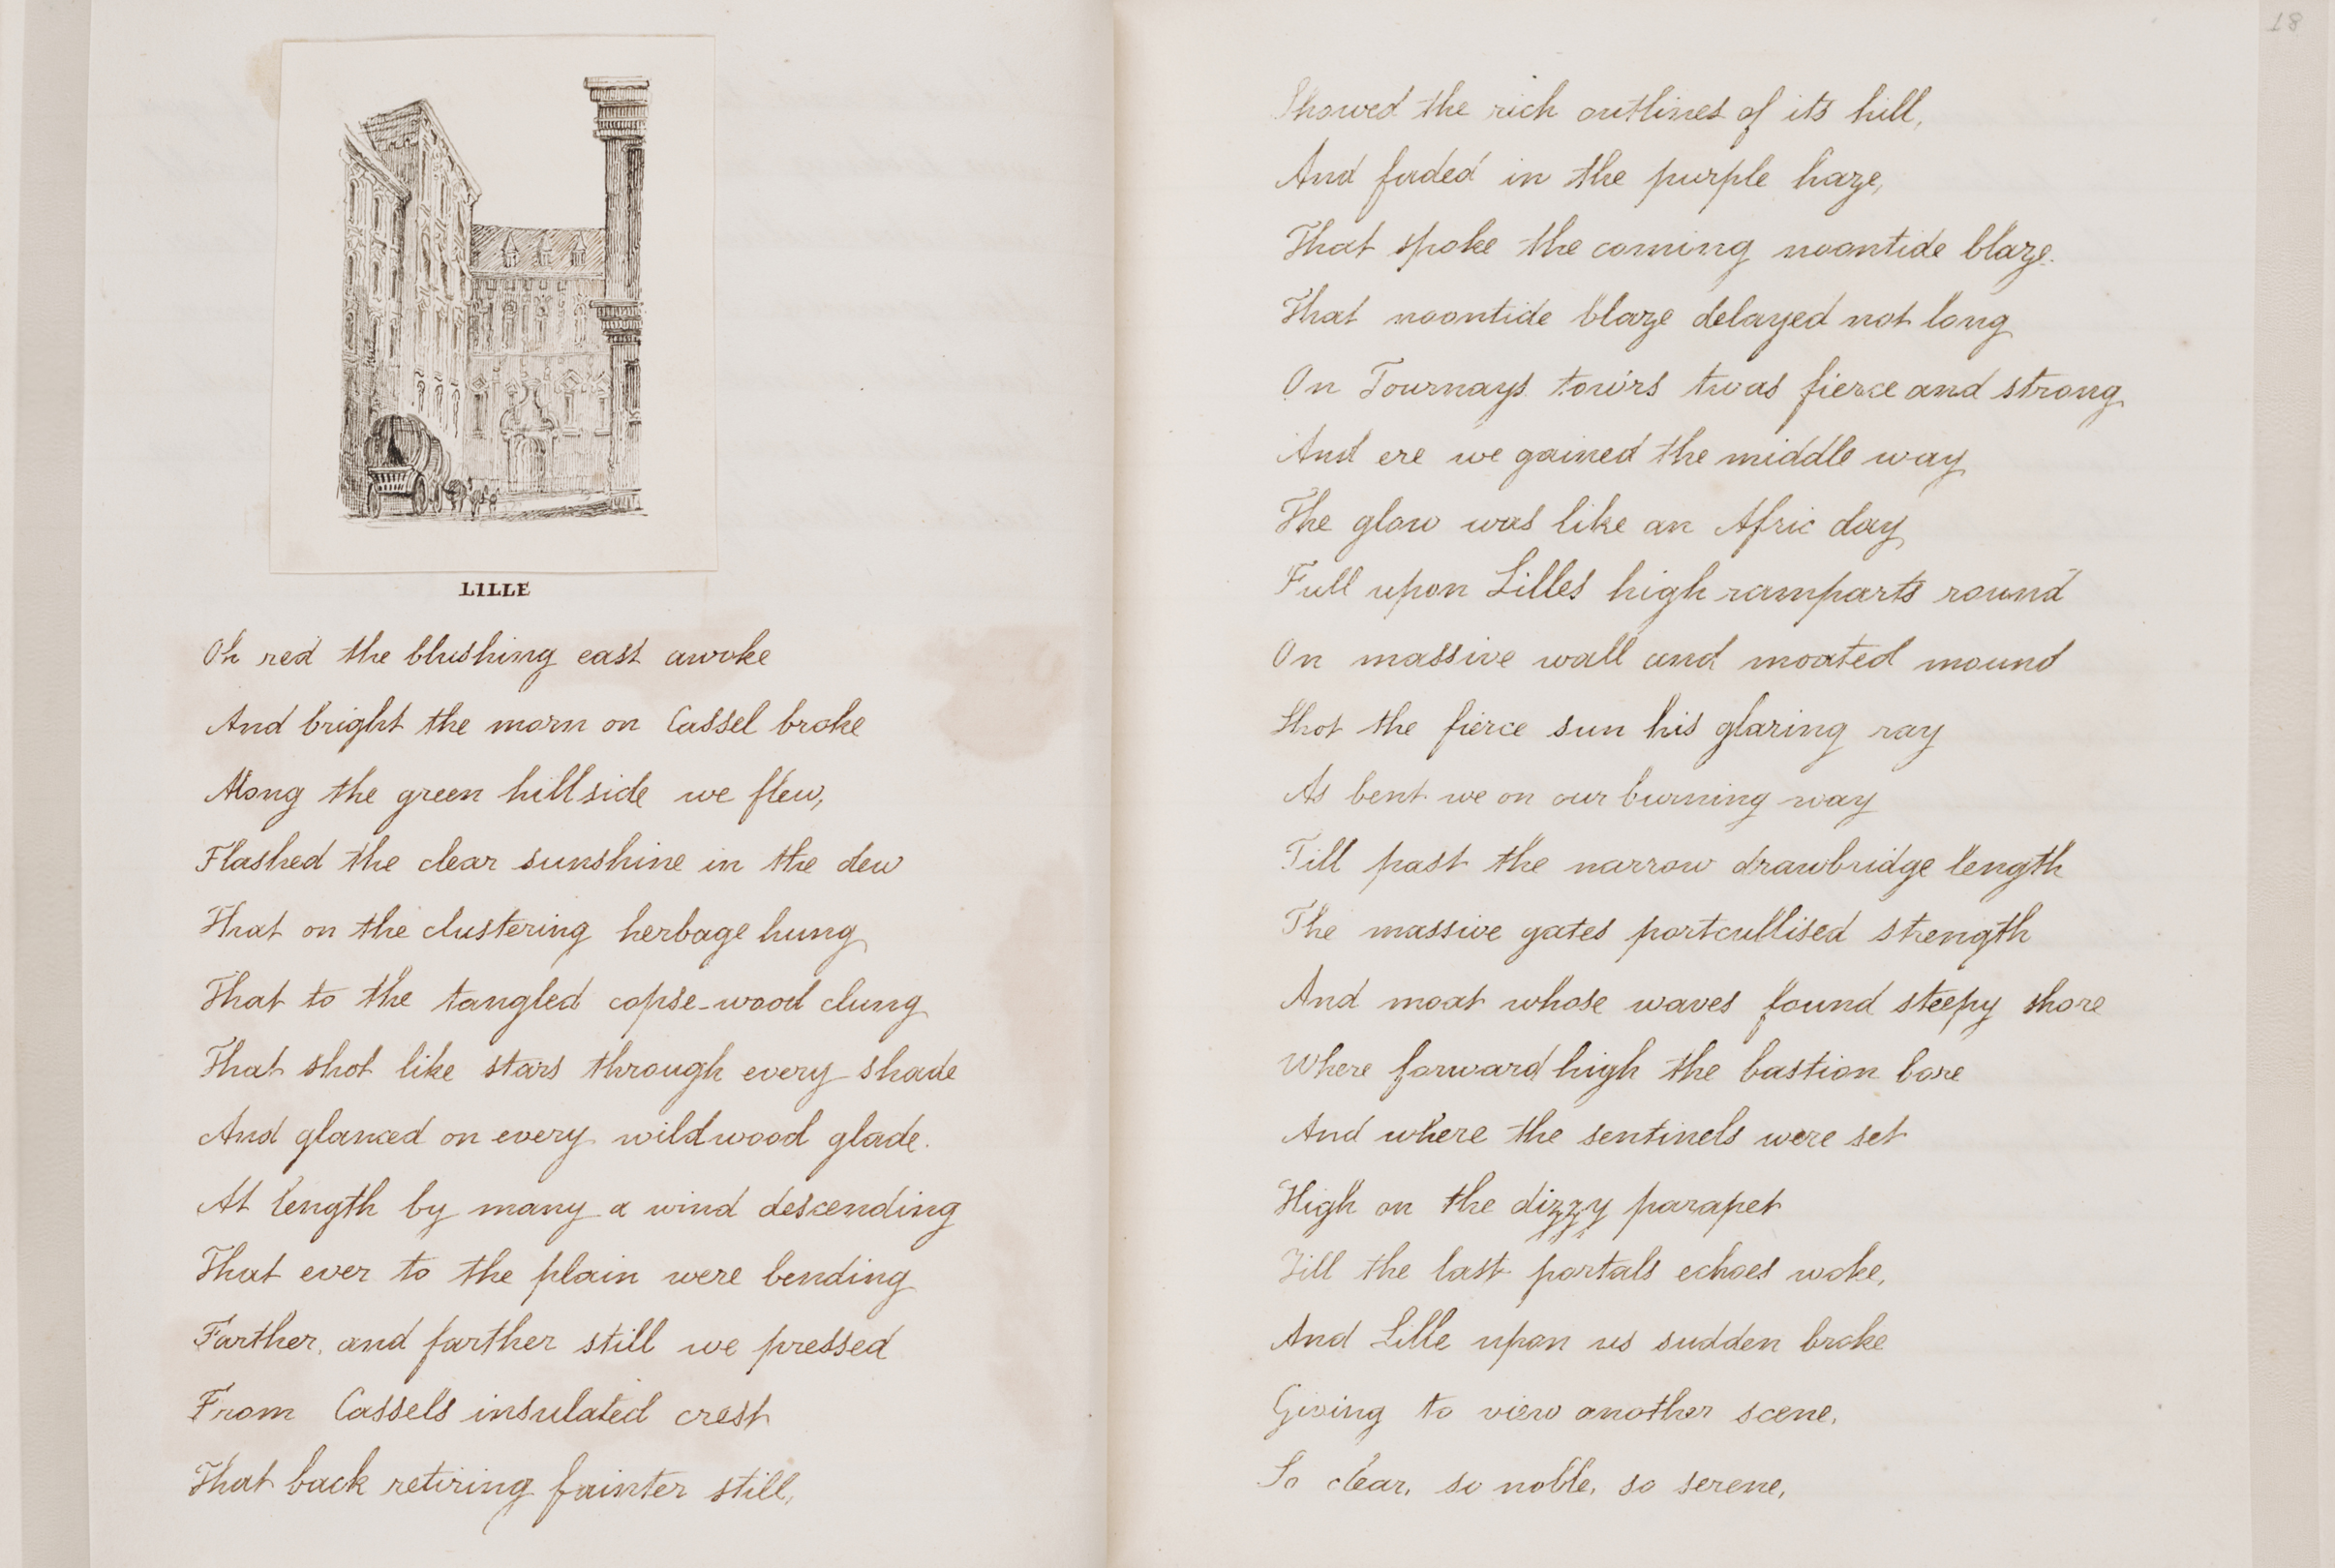 LILLE
Oh red the blushing east awoke
And bright the morn on Cassel broke
Along the green hillside we flew,
Flashed the clear sunshine in the dew
That on the clustering herbage hung
That to the tangled copse-wood clung
That shot like stars through every shade
And glanced on every wildwood glade.
At length by many a wind descending
That ever to the plain were bending
Farther, and farther still we pressed
From Cassels insulated crest
That back retiring fainter still,
18
Showed the rich outlines of its hill,
And faded in the purple haze,
That spoke the coming noontide blaze.
That noontide blaze delayed not long
On Tournays tow'rs twas fierce and strong
And ere we gained the middle way
The glow was like an Afric day
Full upon Lilles high ramparts round
On massive wall and moated mound
Shot the fierce sun his glaring ray
As bent we on our burning way
Till past the narrow drawbridge length
The massive gates portcullised strength
And moat whose waves found steepy shore
Where forward high the bastion bore
And where the sentinels were set
High on the dizzy parapet
Till the last portals echoes woke,
And Lille upon us sudden broke
Giving to view another scene,
So clear, so noble, so serene,